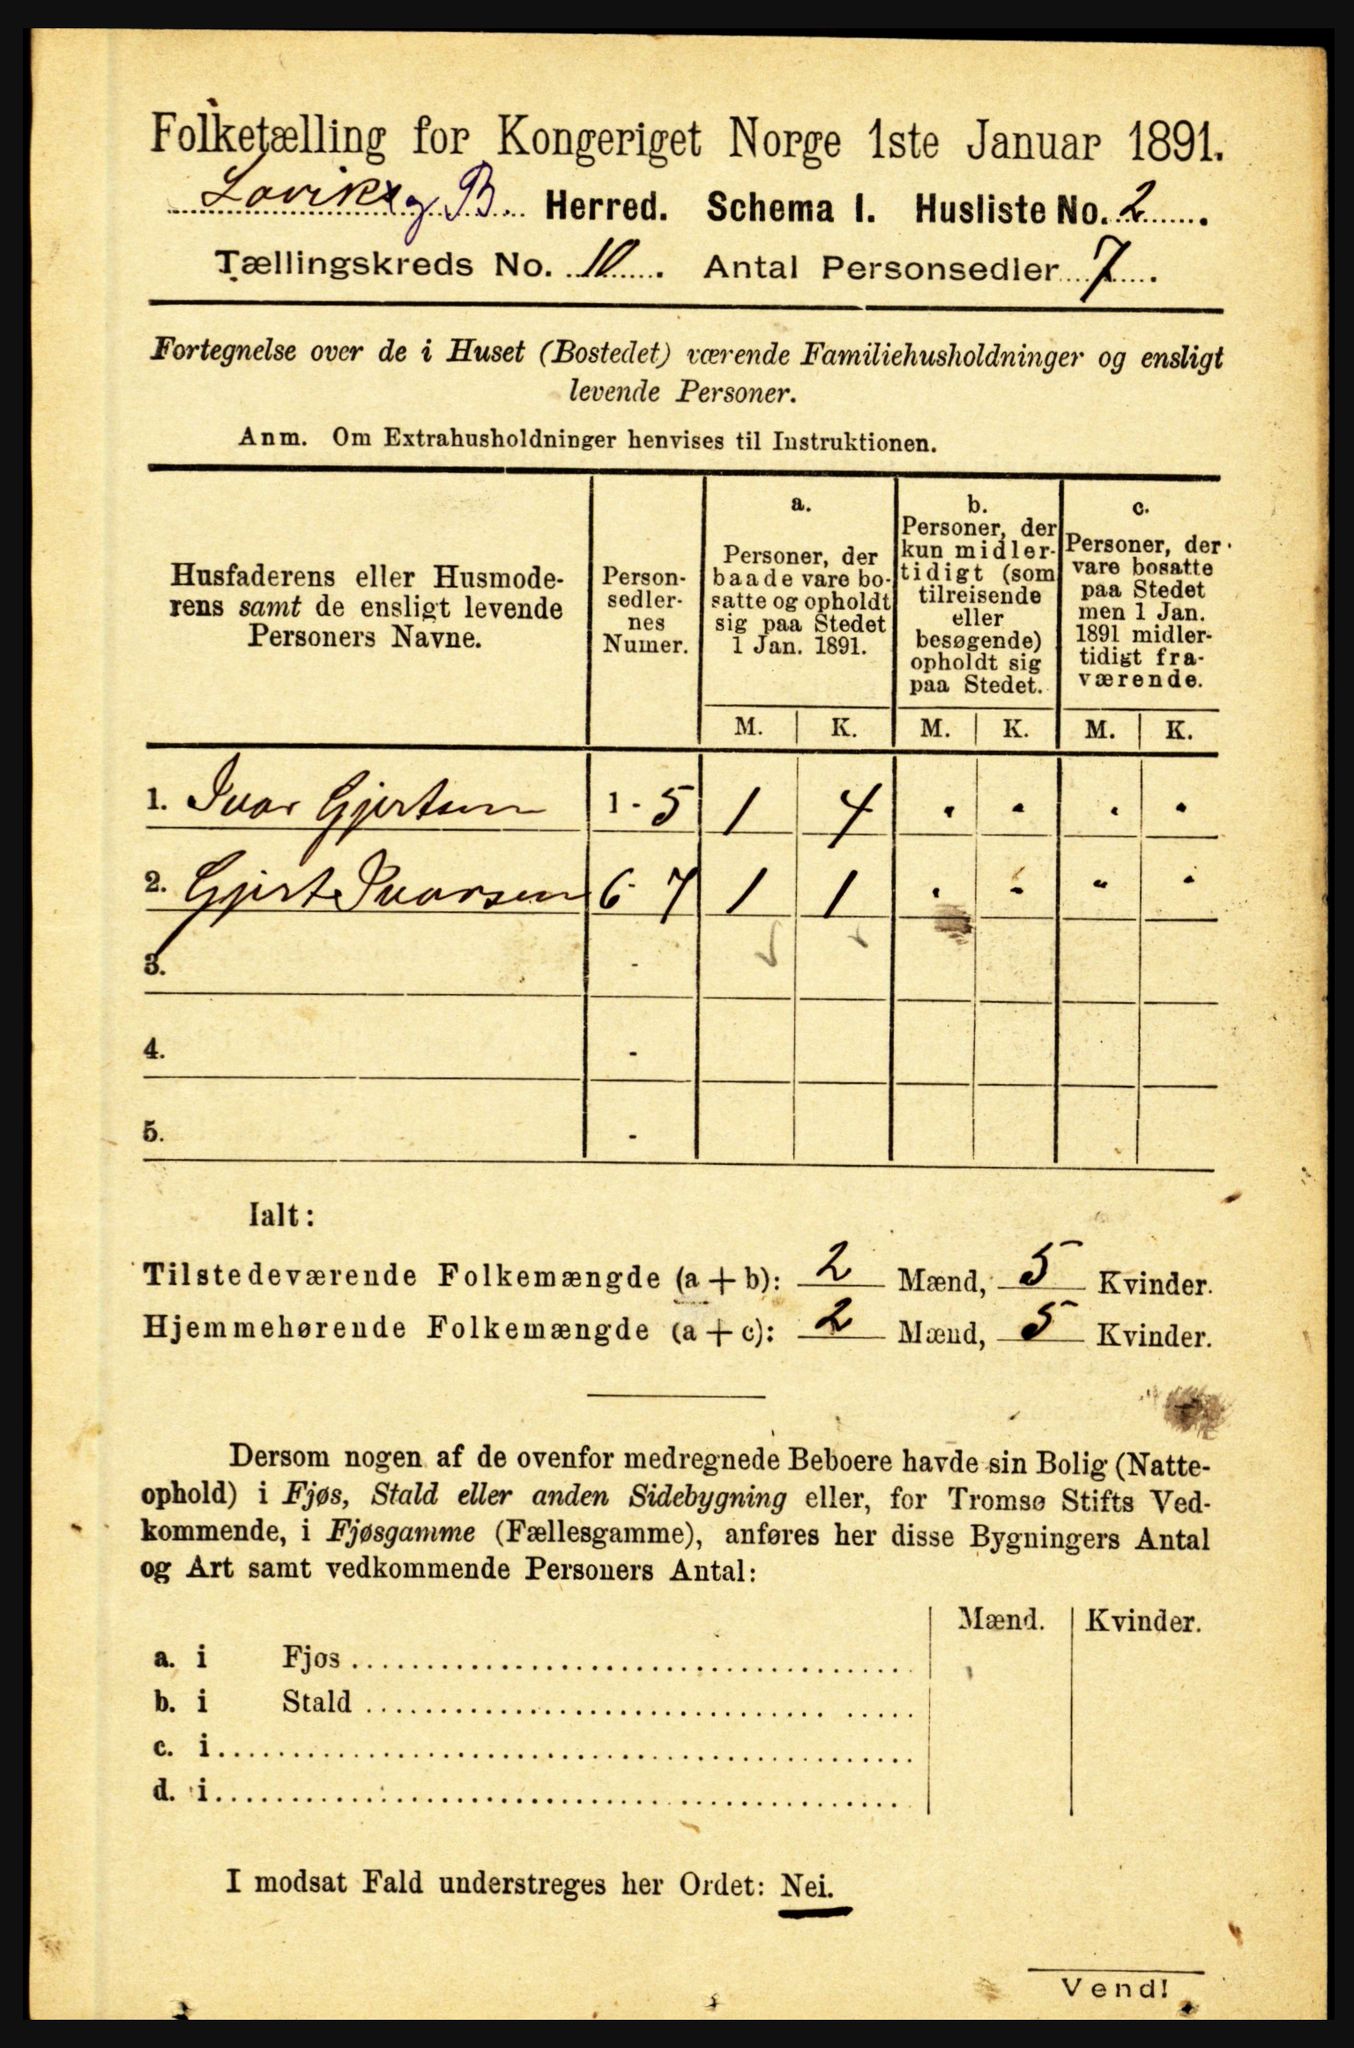 Folketælling for Kongeriget Norge 1ste Januar 1891.
Lavik og B. Herred. Schema I. Husliste No. 2.
Tællingskreds No. 10. Antal Personsedler 7.
Fortegnelse over de i Huset (Bostedet) værende Familiehusholdninger og ensligt
levende Personer.
Anm. Om Extrahusholdninger henvises til Instruktionen.
Husfaderens eller Husmode-
rens samt de ensligt levende
Personers Navne.
Person-
sedler-
nes
Numer.
a.
Personer, der
baade vare bo-
satte og opholdt
sig paa Stedet
1 Jan. 1891.
b.
Personer, der
kun midler-
tidigt (som
tilreisende
eller
besøgende)
opholdt sig
paa Stedet.
c.
Personer, der
vare bosatte
paa Stedet
men 1 Jan.
1891 midler-
tidigt fra-
værende.
M. K. M. K. M. K.
1. Ivar Gjertsen 1 - 5 1 4 . - . -
2. Gjert Ivarsen 6 - 7 1 1 . - - -
3. -
4. -
5. -
Ialt:
Tilstedeværende Folkemængde (a + b): 2 Mænd, 5 Kvinder.
Hjemmehørende Folkemængde (a + c): 2 Mænd, 5 Kvinder.
Dersom nogen af de ovenfor medregnede Beboere havde sin Bolig (Natte-
ophold) i Fjøs, Stald eller anden Sidebygning eller, for Tromsø Stifts Ved-
kommende, i Fjøsgamme (Fællesgamme), anføres her disse Bygningers Antal
og Art samt vedkommende Personers Antal:
Mænd. Kvinder.
a. i Fjøs
b. i Stald
c. i
d. i
I modsat Fald understreges her Ordet: Nei.
Vend!